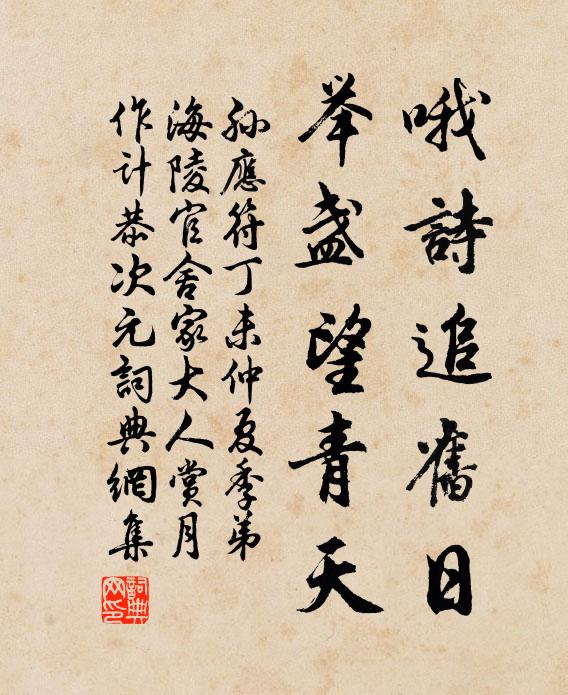 哦詩追舊日
举盏望青天
孙應符丁未仲夏季弟
海陵官舍家大人賞月
作计恭次元詞典網集
詞典网印